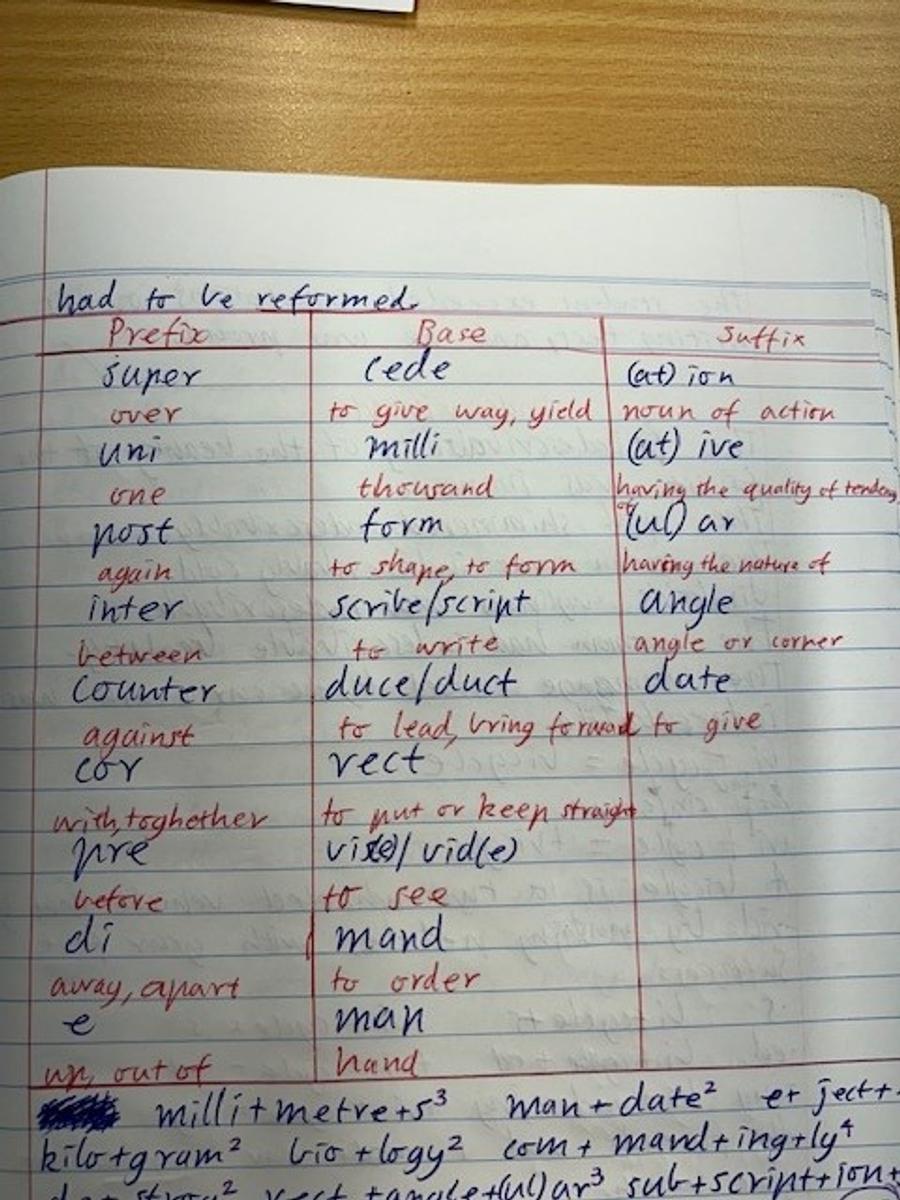 had to be reformed.
Prefix Base Suffix
super cede (at) ion
over to give way, yield noun of action
uni milli (at) ive
one thousand having the quality of
post form (ul) ar
again to shape, to form having the nature of
inter scribe/script angle
between to write angle or corner
counter duce/duct date
against to lead, bring forward to give
cor rect
with, toghether to put or keep straight
pre vis(e)/ vid(e)
before to see
di mand
away, apart to order
e man
up, out of hand
milli+metre+s³ man+date² e+ ject+
kilo+gram² bio+logy² com+ mand+ing+ly⁴
rect +angle+(ul)ar³ sub+script+ion+